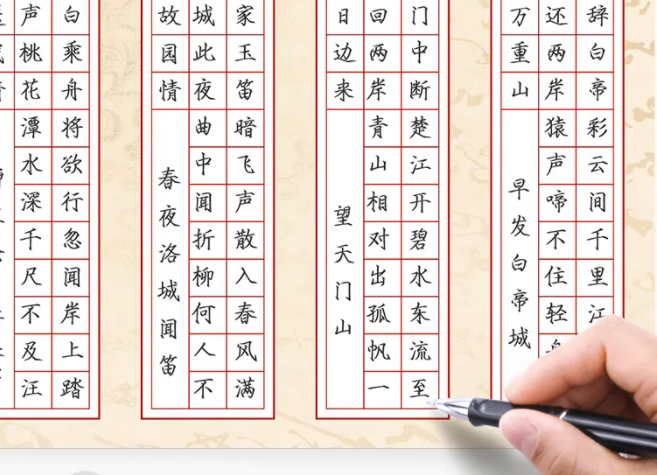 辞白帝彩云间千里江
还两岸猿声啼不住轻
万重山
早发白帝城
门中断楚江开碧水东流至
回两岸青山相对出孤帆一
日边来
望天门山
家玉笛暗飞声散入春风满
城此夜曲中闻折柳何人不
故园情
春夜洛城闻笛
白乘舟将欲行忽闻岸上踏
声桃花潭水深千尺不及汪